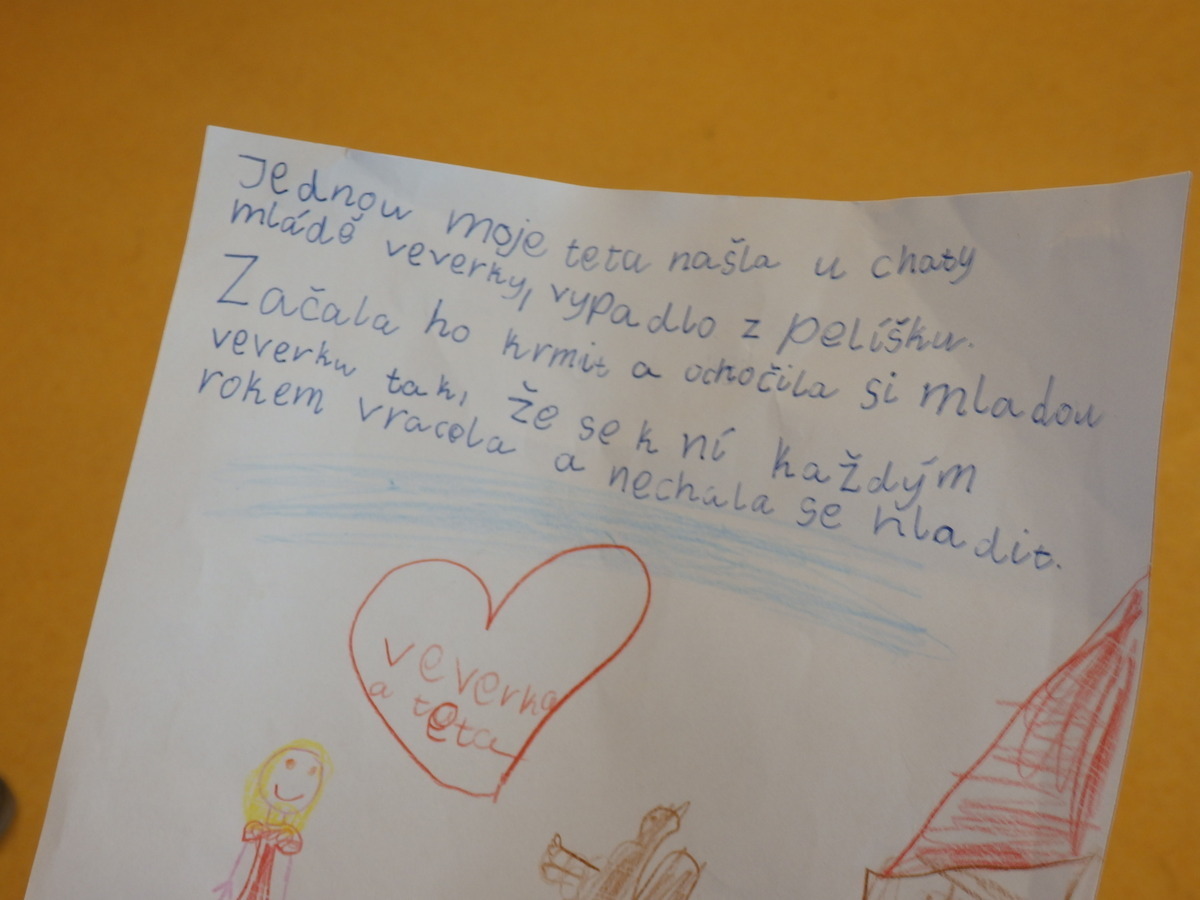 Jednou moje teta našla u chaty
mládě veverky, vypadlo z pelíšku.
Začala ho krmit a ochočila si mladou
veverku tak, že se k ní každým
rokem vracela a nechala se hladit.
veverka
a teta